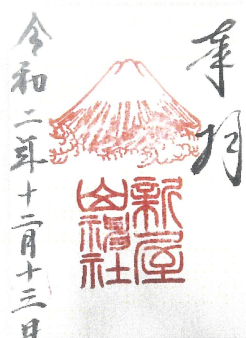 奉拝
新屋
山神社
令和二年十二月十三日